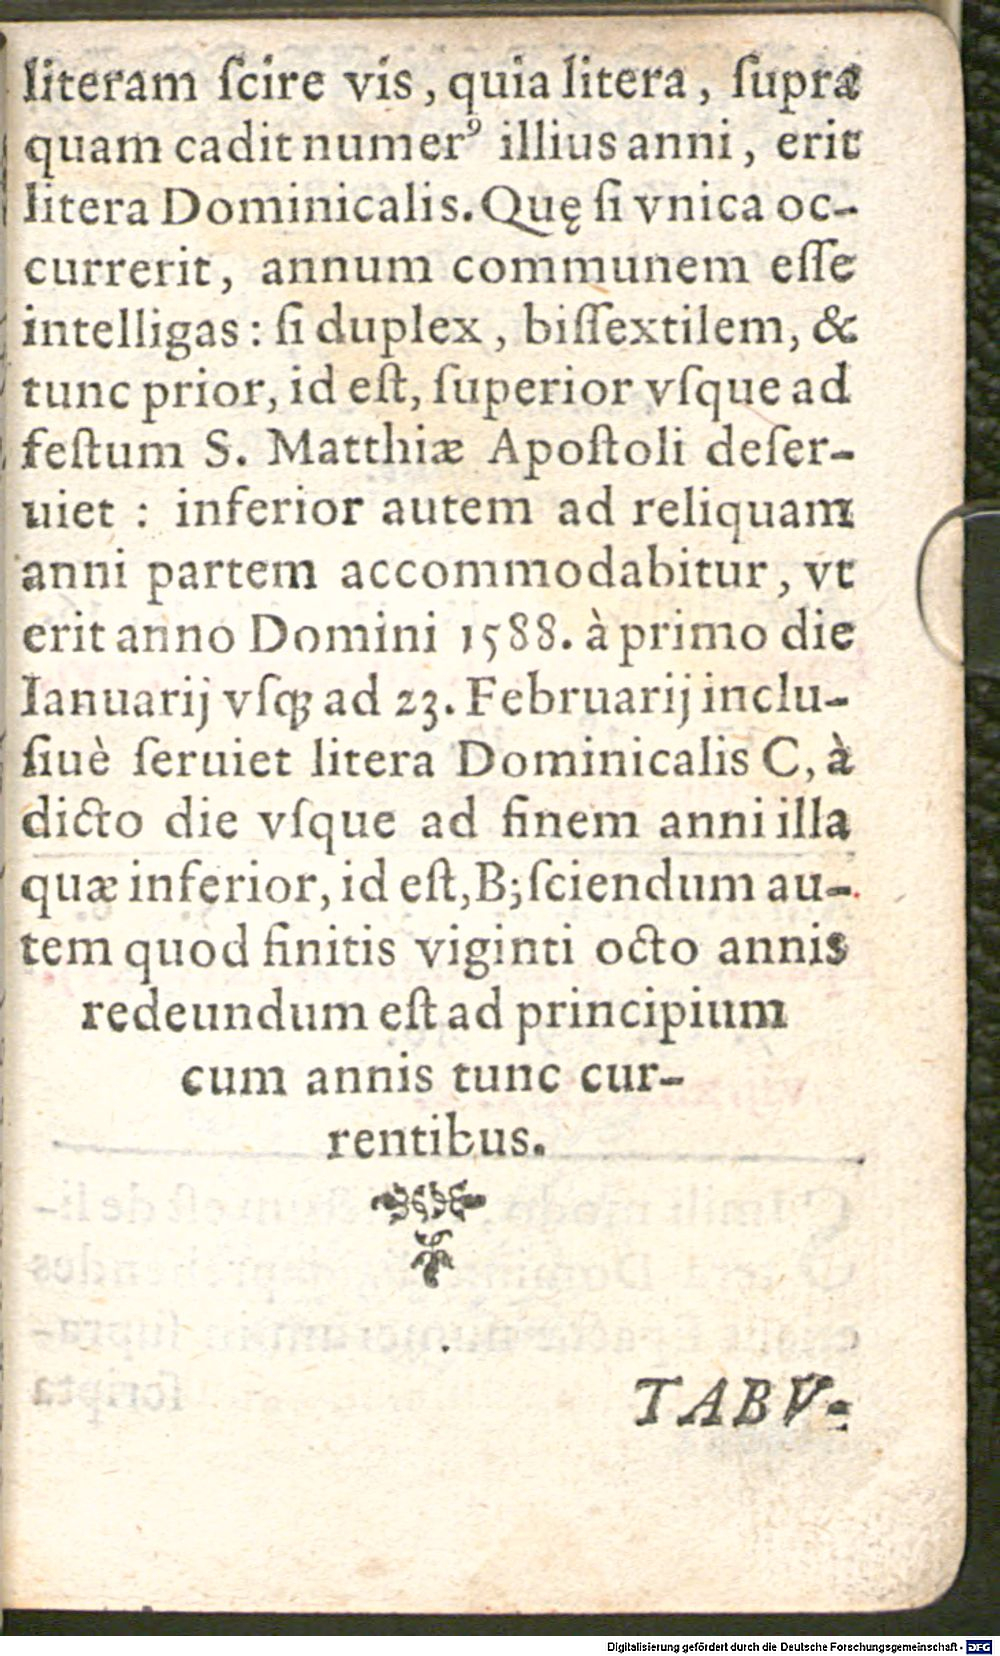 literam ſcire vis, quia litera, ſupra
quam cadit numerꝰ illius anni, erit
litera Dominicalis. Quę ſi vnica oc-
currerit, annum communem eſſe
intelligas: ſi duplex, biſſextilem, &
tunc prior, id eſt, ſuperior vſque ad
feſtum S. Matthiæ Apoſtoli deſer-
uiet : inferior autem ad reliquam
anni partem accommodabitur, vt
erit anno Domini 1588. à primo die
Ianuarij vſqꝫ ad 23. Februarij inclu-
ſiuè ſeruiet litera Dominicalis C, à
dicto die vſque ad finem anni illa
quæ inferior, id eſt, B; ſciendum au-
tem quod finitis viginti octo annis
redeundum eſt ad principium
cum annis tunc cur-
rentibus.
TABV-
Digitalisierung gefördert durch die Deutsche Forschungsgemeinschaft - DFG